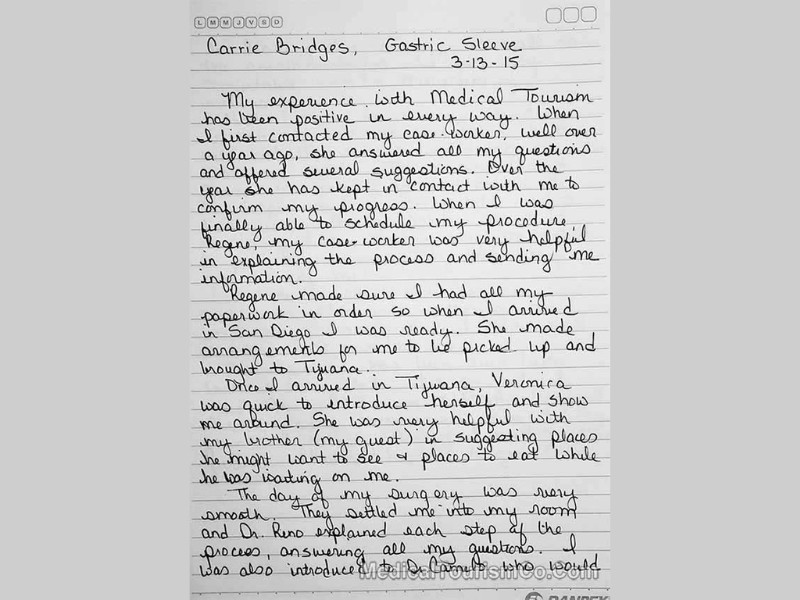 L M M J V S D
Carrie Bridges, Gastric Sleeve
3-13-15
My experience with Medical Tourism
has been positive in every way. When
I first contacted my case-worker, well over
a year ago, she answered all my questions
and offered several suggestions. Over the
year she has kept in contact with me to
confirm my progress. When I was
finally able to schedule my procedure
Regene, my case-worker was very helpful
in explaining the process and sending me
information.
Regene made sure I had all my
paperwork in order so when I arrived
in San Diego I was ready. She made
arrangements for me to be picked up and
brought to Tijuana.
Once I arrived in Tijuana, Veronica
was quick to introduce herself and show
me around. She was very helpful with
my brother (my guest) in suggesting places
he might want to see & places to eat while
he was waiting on me.
The day of my surgery was very
smooth. They settled me into my room
and Dr. Reno explained each step of the
process, answering all my questions. I
was also introduced to Dr. Camelo who would
MedicalTourismCo.Com